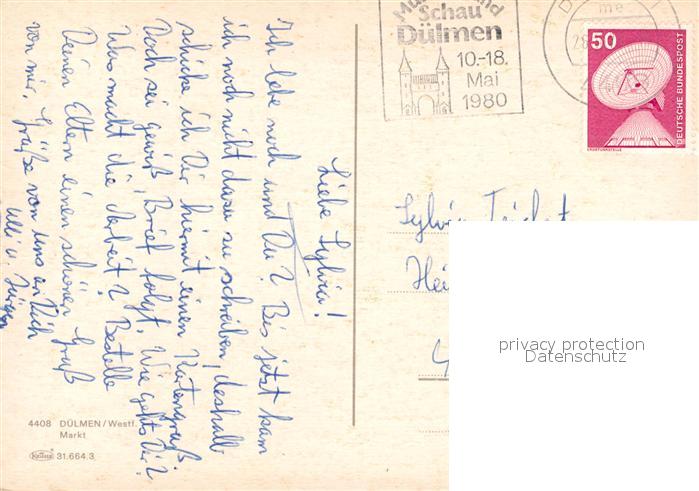 Schau
Dülmen
10.-18.
Mai
1980
me
28
50
DEUTSCHE BUNDESPOST
ERDEFUNKSTELLE
Liebe Sylvia!
Ich lebe noch und Du? Bis jetzt kam
ich noch nicht dazu zu schreiben, deshalb
schicke ich Dir hiermit einen Kartengruß.
Doch sei gewiß, Brief folgt. Wie gehts Dir?
Was macht die Arbeit? Bestelle
Deinen Eltern einen schönen Gruß
von mir. Grüße von uns an Dich
Ulli u. Jürgen
Sylvia
4408 DÜLMEN/Westf.
Markt
31.664.3
privacy protection
Datenschutz